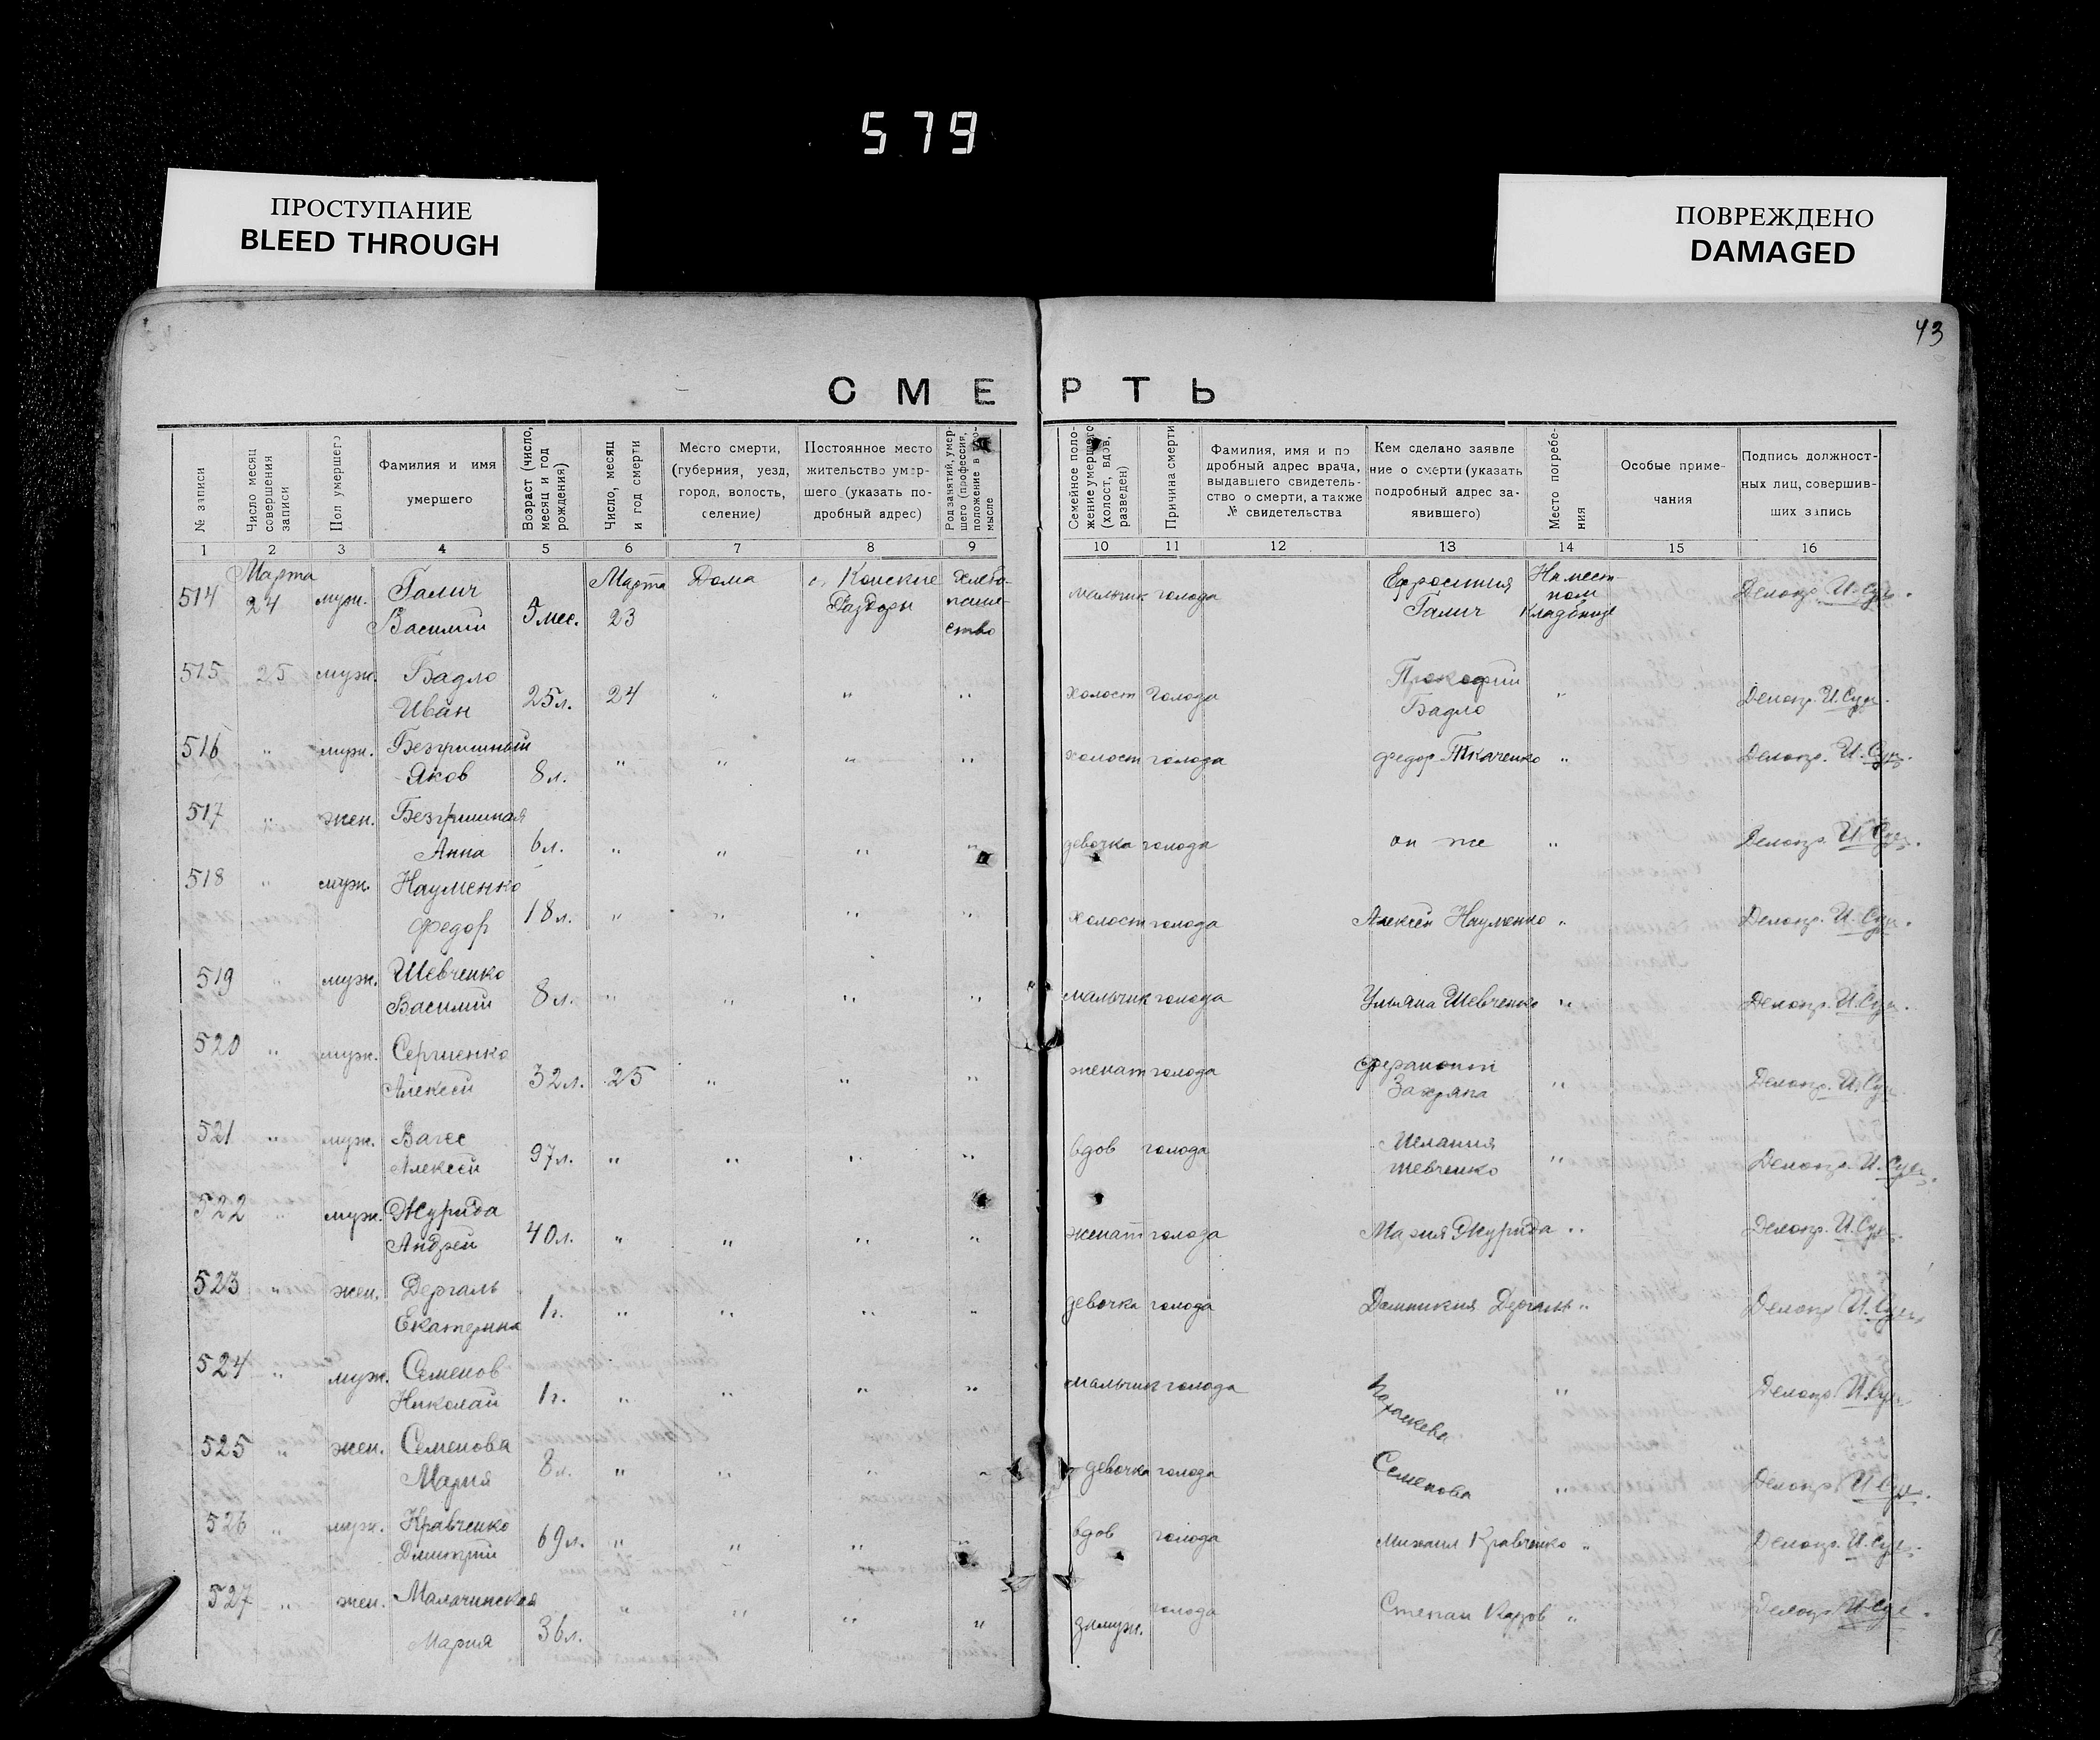 579
ПРОСТУПАНИЕ
BLEED THROUGH
ПОВРЕЖДЕНО
DAMAGED
43
СМЕРТЬ
№ записи
Число месяц совершения записи
Пол умершего
Фамилия и имя умершего
Возраст (число, месяц и год рождения)
Число, месяц и год смерти
Место смерти, (губерния, уезд, город, волость, селение)
Постоянное место жительство умершего (указать подробный адрес)
Род занятий, умершего (профессия, положение в промысле
Семейное положение умершего (холост, вдов, разведен)
Причина смерти
Фамилия, имя и подробный адрес врача, выдавшего свидетельство о смерти, а также № свидетельства
Кем сделано заявление о смерти (указать подробный адрес заявившего)
Место погребения
Особые примечания
Подпись должностных лиц, совершивших запись
1 2 3 4 5 6 7 8 9 10 11 12 13 14 15 16
514 Марта 24 муж. Галич Василий 5 мес. Марта 23 Дома с. Конские Раздоры хлебопашество мальчик голода Ефросиния Галич На местном кладбище Делопр. И. Сум.
515 25 муж. Бадло Иван 25 л. 24 " " " холост голода Прокофий Бадло " Делопр.
516 " муж. Безгришный Яков 8 л. " " " " холост голода Федор Ткаченко " Делопр.
517 " жен. Безгришная Анна 6 л. " " " " девочка голода он же " Делопр.
518 " муж. Науменко Федор 18 л. " " " " холост голода Алексей Науменко " Делопр.
519 " муж. Шевченко Василий 8 л. " " " " мальчик голода Ульяна Шевченко " Делопр.
520 " муж. Сергиенко Алексей 32 л. 25 " " " женат голода Ферапонт " Делопр.
521 " муж. Алексей 97 л. " " " " вдов голода Мелания Шевченко " Делопр.
522 " муж. Журида Андрей 40 л. " " " " женат голода Мария Журида " Делопр.
523 " жен. Дергаль Екатерина 1 г. " " " " девочка голода Домникия Дергаль " Делопр.
524 " муж. Семенов Николай 1 г. " " " " мальчик голода Параскева " Делопр.
525 " жен. Семенова Мария 8 л. " " " " девочка голода Семенова " Делопр.
526 " муж. Кравченко Дмитрий 69 л. " " " " вдов голода Михаил Кравченко " Делопр.
527 " жен. Малачинская Мария 36 л. " " " " замуж. голода Степан " Делопр.